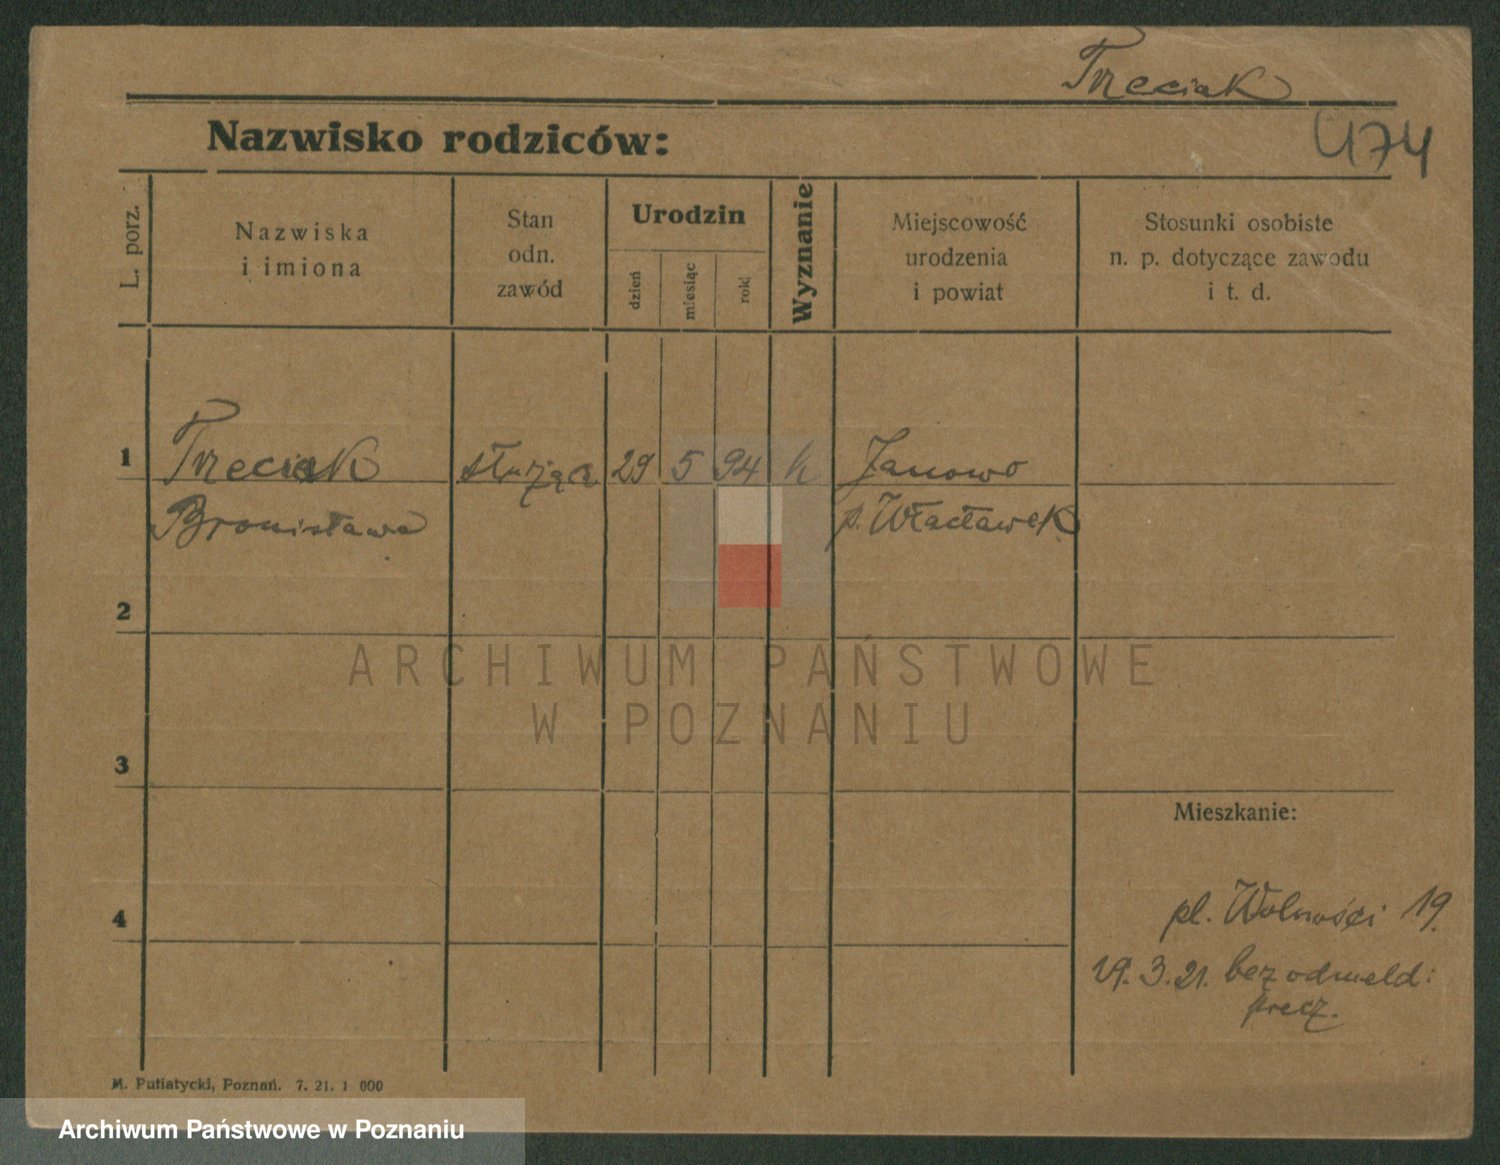 Trzeciak
474
Nazwisko rodziców:
L. porz.
Nazwiska
i imiona
Stan
odn.
zawód
Urodzin
dzień
miesiąc
rok
Wyznanie
Miejscowość
urodzenia
i powiat
Stosunki osobiste
n. p. dotyczące zawodu
i t. d.
1
Trzeciak
służąca
29
5
94
k
Janowo
Bronisława
p. Włacławek
2
ARCHIWUM PAŃSTWOWE
W POZNANIU
3
Mieszkanie:
4
pl. Wolności 19.
19. 3. 21. bez odmeld:
precz.
M. Putiatycki, Poznań. 7. 21. 1 000
Archiwum Państwowe w Poznaniu